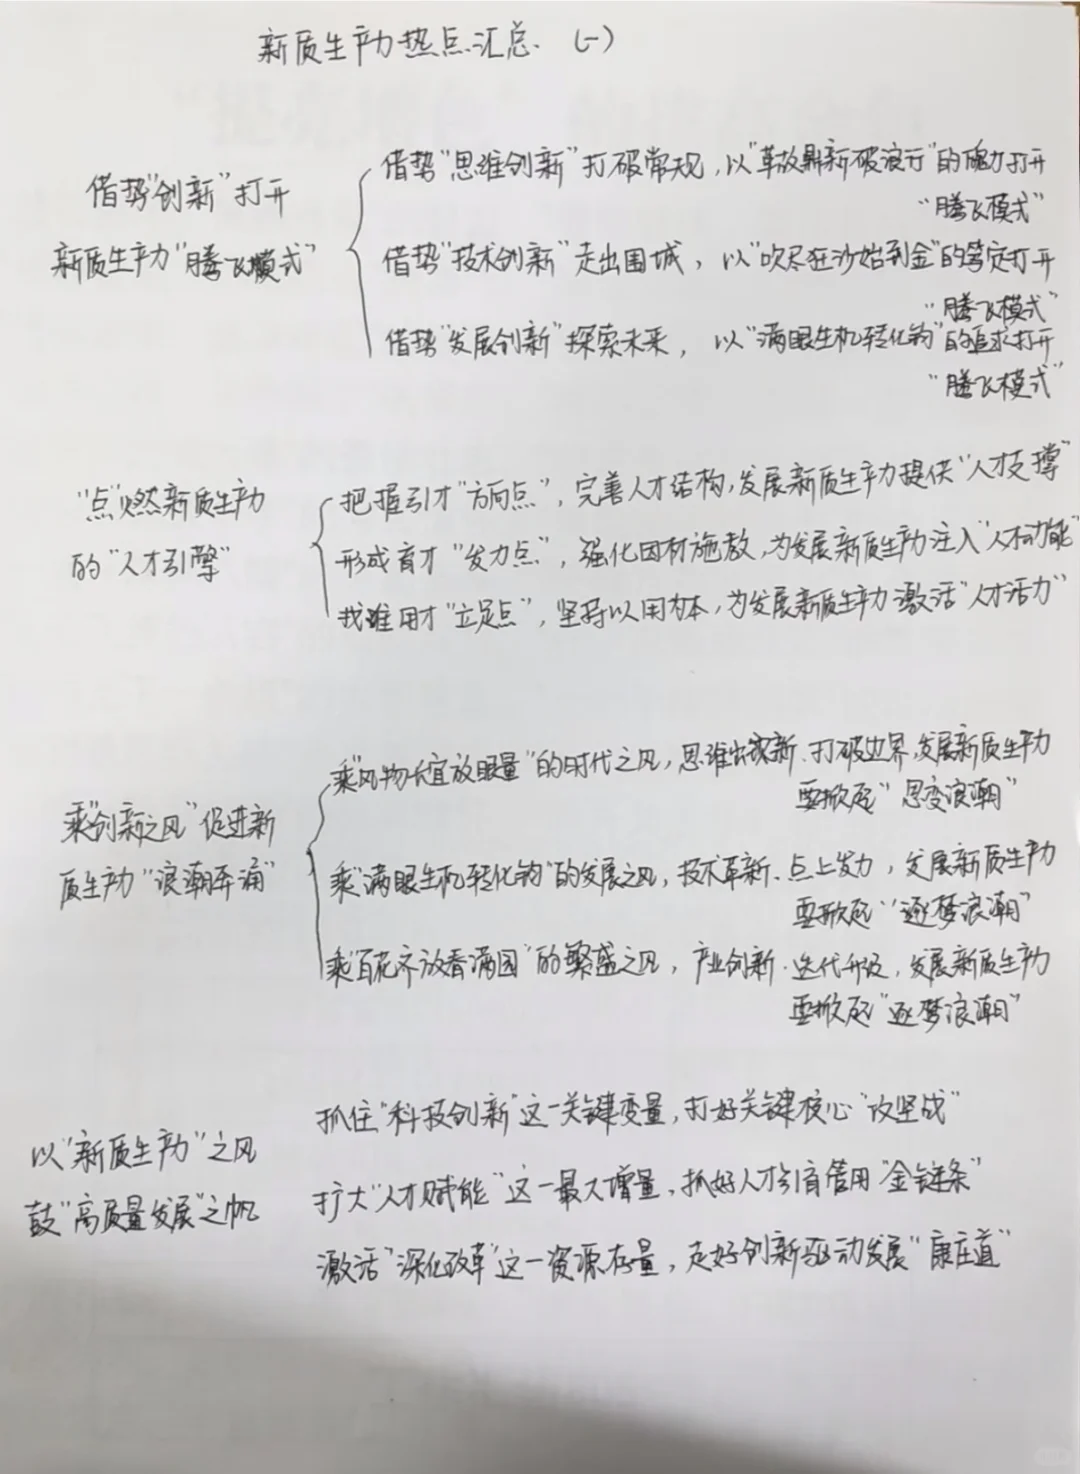 新质生产力热点汇总 (一)
借势"创新"打开
新质生产力"腾飞模式"
借势"思维创新"打破常规，以"革故鼎新破浪行"的魄力打开
"腾飞模式"
借势"技术创新"走出围城，以"吹尽狂沙始到金"的笃定打开
"腾飞模式"
借势"发展创新"探索未来，以"满眼生机转化钧"的追求打开
"腾飞模式"
"点"燃新质生产力
的"人才引擎"
把握引才"方向点"，完善人才结构，发展新质生产力提供"人才支撑"
形成育才"发力点"，强化因材施教，为发展新质生产力注入"人才动能"
找准用才"立足点"，坚持以用为本，为发展新质生产力激活"人才活力"
乘"创新之风"促进新
质生产力"浪潮奔涌"
乘"风物长宜放眼量"的时代之风，思维出新、打破边界，发展新质生产力
要掀起"思变浪潮"
乘"满眼生机转化钧"的发展之风，技术革新、点上发力，发展新质生产力
要掀起"逐梦浪潮"
乘"百花齐放看满园"的繁盛之风，产业创新、迭代升级，发展新质生产力
要掀起"逐梦浪潮"
以"新质生产力"之风
鼓"高质量发展"之帆
抓住"科技创新"这一关键变量，打好关键核心"攻坚战"
扩大"人才赋能"这一最大增量，抓好人才引育管用"金链条"
激活"深化改革"这一资源存量，走好创新驱动发展"康庄道"